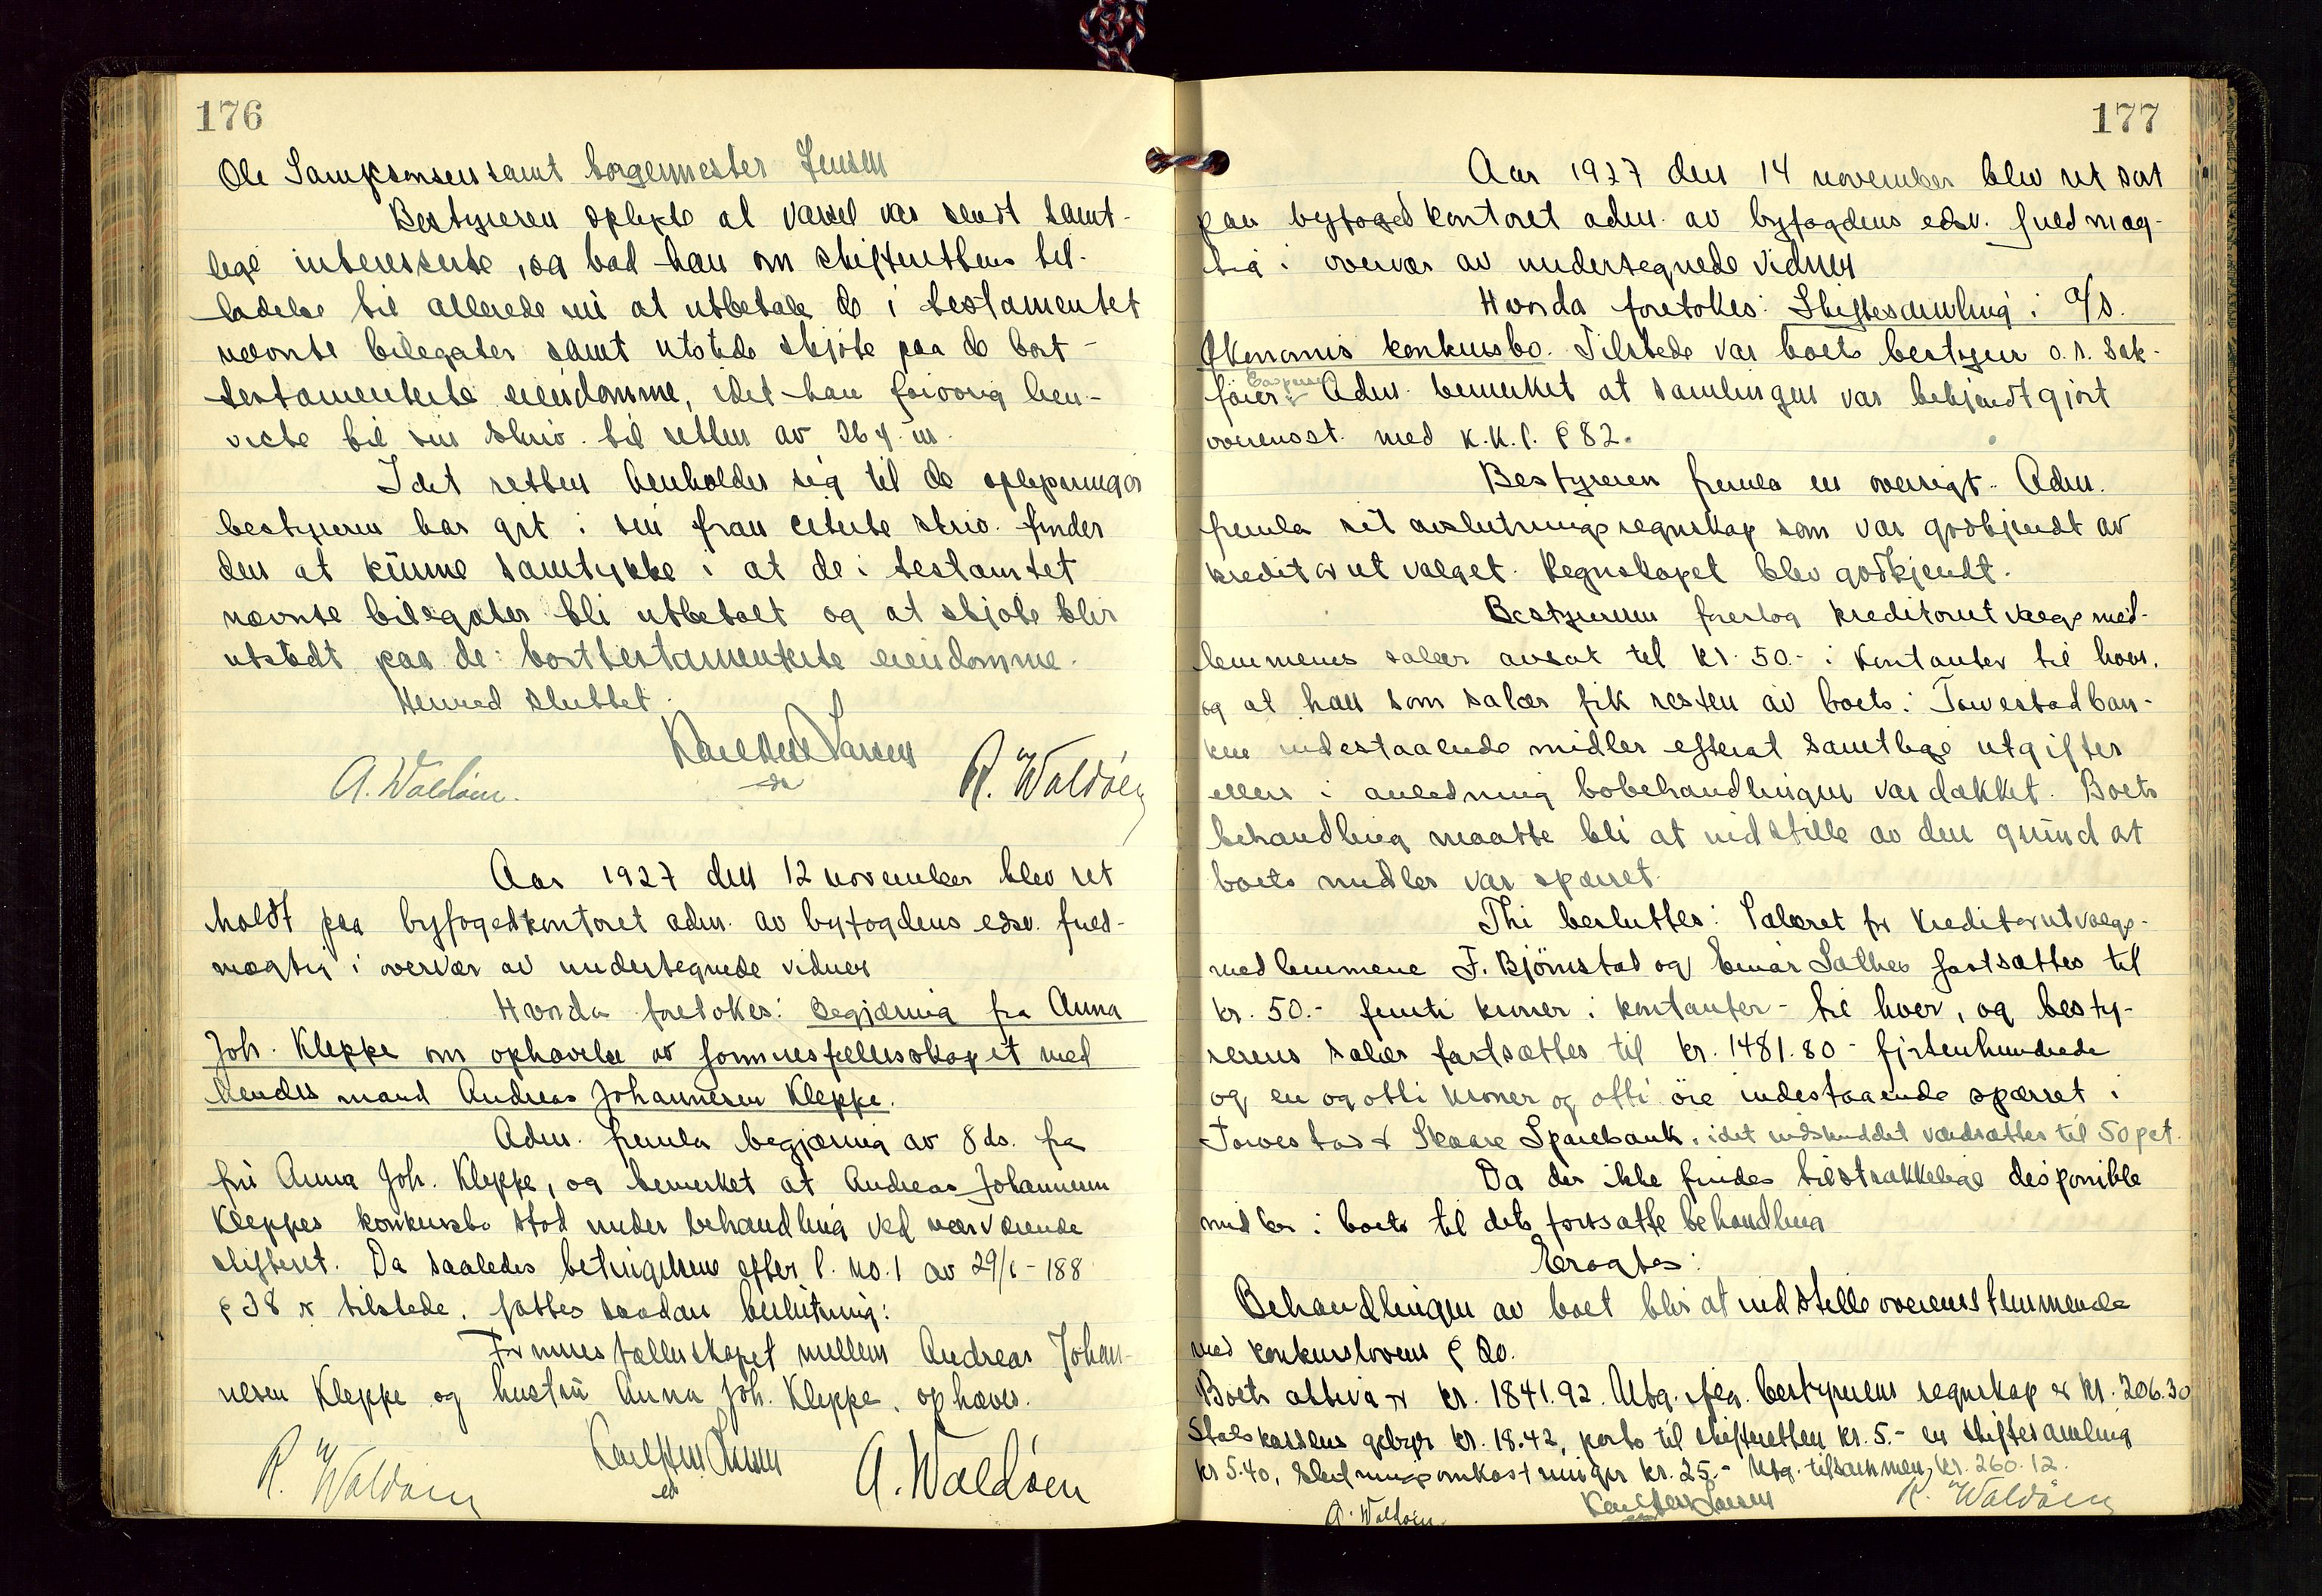 176
Ole Samsonsen samt borgermester Jensen
Bestyreren oplyste at varsel var sendt samt-
lige interesserte, og bad han om skifterettens til-
ladelse til allerede nu at utbetale de i testamentet
nævnte bilegater samt utstede skjøte paa de bort-
testamenterte eiendomme, idet han forøvrig hen-
viste til sin skriv. til retten av 26 f. m.
Idet retten henholder sig til de oplysninger
bestyreren har git i sin fran citerte skriv. finder
den at kunne samtykke i at de i testamtet
nævnte bilegater bli utbetalt og at skjøte blir
utstedt paa de: borttestamenterte eiendomme.
Hermed sluttet.
Karl Larsen
A. Waldøen. R. Waldøen
Aar 1927 den 12 november blev ret
holdt paa byfogedkontoret adm. av byfogdens edsv. fuld-
mægtig i overvær av undertegnede vidner
Hvorda foretokes: Begjæring fra Anna
Joh. Kleppe om ophævelse av formuesfellesskapet med
hendes mand Andreas Johannesen Kleppe.
Adm. fremla begjæring av 8 ds. fra
fru Anna Joh. Kleppe, og bemerket at Andreas Johannesen
Kleppes konkursbo stod under behandling ved nærværende
skifteret. Da saaledes betingelsene efter l. no. 1 av 29/6-188
§ 38 er tilstede, fattes saadan beslutning:
Formuesfællesskapet mellem Andreas Johan-
nesen Kleppe og hustru Anna Joh. Kleppe, ophæves.
R. Waldøen Karl Larsen A. Waldøen
177
Aar 1927 den 14 november blev ret sat
paa byfogedkontoret adm. av byfogdens edsv. fuldmæg-
tig i overvær av undertegnede vidner
Hvorda foretokes: Skiftesamling i A/S.
Økonomis konkursbo. Tilstede var boets bestyrer o.r. sak-
fører Adm. bemerket at samlingen var bekjendtgjort
overensst. med K.K.l. § 82.
Bestyreren fremla en oversigt. Adm.
fremla sit avslutningsregnskap som var godkjendt av
kreditorutvalget. Regnskapet blev godkjendt.
Bestyreren foreslog kreditorutvalgsmed-
lemmenes salær avsat til kr. 50.- i kontanter til hver,
og at han som salær fik resten av boets i Torvestadban-
ken indestaaende midler efterat samtlige utgifter
ellers i anledning bobehandlingen var dækket. Boets
behandling maatte bli at indstille av den grund at
boets midler var sperret.
Thi besluttes: Salæret for kreditorutvalgs-
medlemmene F. Bjørnstad og Einar Sathes fastsættes til
kr. 50.- femti kroner i kontanter - til hver, og besty-
rerens salær fastsættes til kr. 1481.80 - fjortenhundrede
og en og otti kroner og otti øre indestaaende spærret i
Torvestad & Skaare Sparebank, idet indskuddet værdsættes til 50 pct.
Da der ikke findes tilstrækkelige disponible
midler i boets til dets fortsatte behandling
Eragtes:
Behandlingen av boet blir at indstille overensstemmende
med konkurslovens § 20.
Boets aktiva er kr. 1841.92. Utg. ifølg. bestyrerens regnskap er kr. 206.30
Statskassens gebyr kr. 18.42, porto til skifteretten kr. 5.- en skiftesamling
kr 5.40, slutningsomkostninger kr. 25.- Utg. tilsammen kr. 260.12.
A. Waldøen. Karl Larsen R. Waldøen